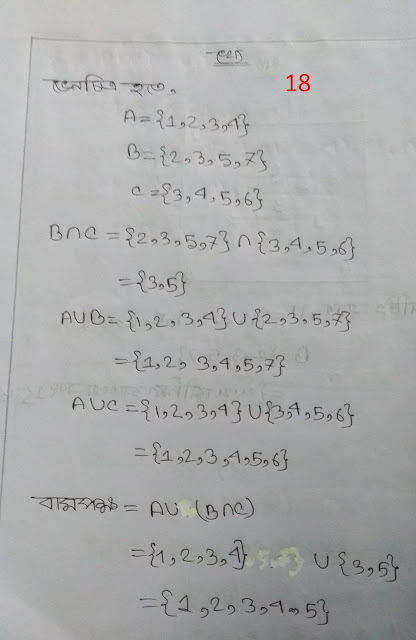 18
ভেনচিত্র হতে,
A={1,2,3,4}
B={2,3,5,7}
C={3,4,5,6}
B∩C={2,3,5,7}∩{3,4,5,6}
={3,5}
A∪B={1,2,3,4}∪{2,3,5,7}
={1,2,3,4,5,7}
A∪C={1,2,3,4}∪{3,4,5,6}
={1,2,3,4,5,6}
বামপক্ষ = A∪(B∩C)
={1,2,3,4} ∪{3,5}
={1,2,3,4,5}